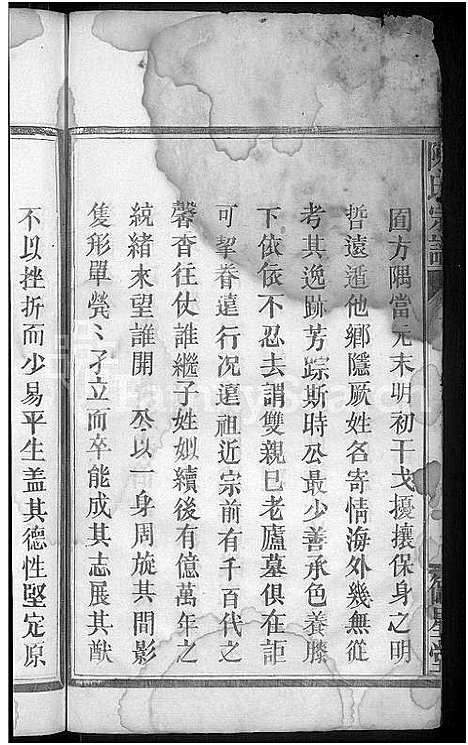 陳氏宗譜
圄方隅當元末明初干戈擾攘保身之明
哲遠遁他鄉隱厥姓名寄情海外幾無從
考其逸跡芳踪斯時公最少善承色養膝
下依依不忍去謂雙親已老廬墓俱在詎
可挈眷遠行况遠祖近宗前有千百代之
馨香往仗誰繼子姓姒續後有億萬年之
統緒來望誰開公以一身周旋其間影
隻形單煢〻孑立而卒能成其志展其猷
不以挫折而少易平生盖其德性堅定原